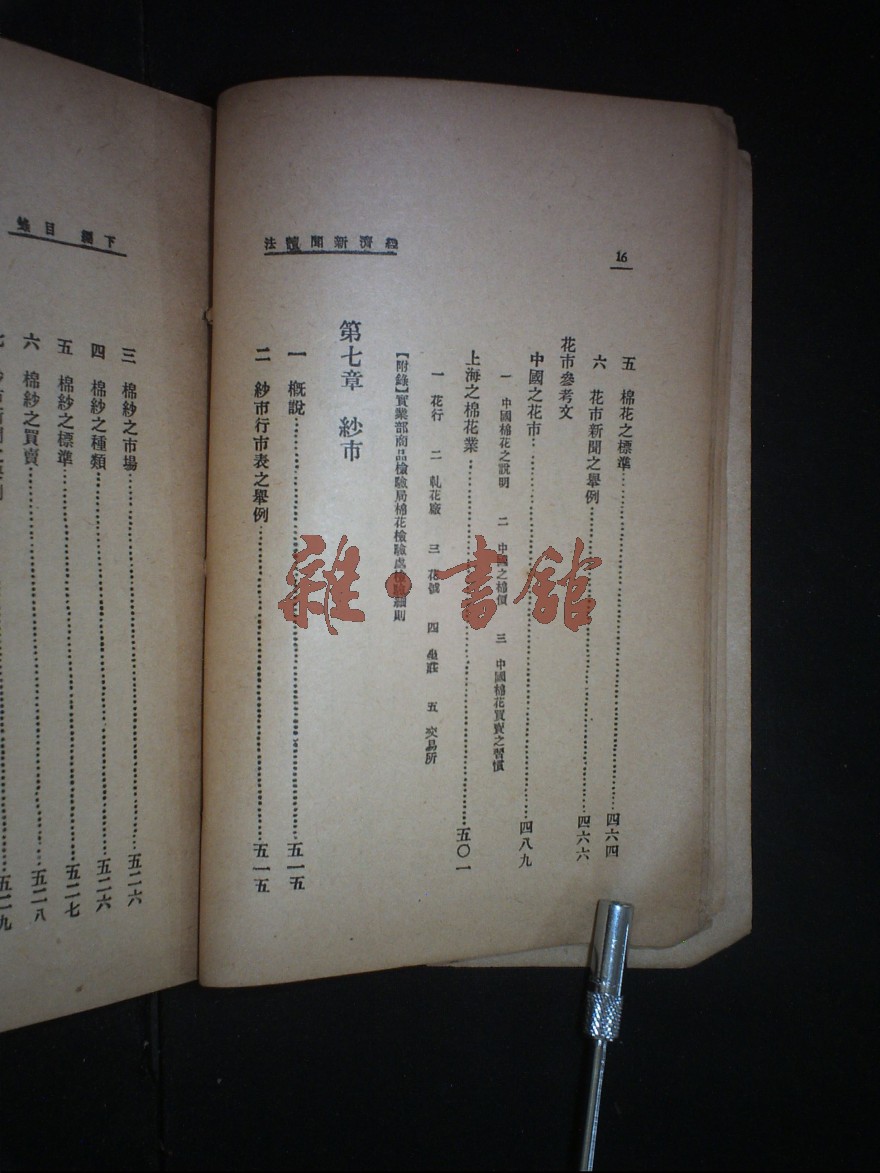 16
經濟新聞讀法
五 棉花之標準 四六四
六 花市新聞之舉例 四六六
花市參考文
中國之花市 四八九
一 中國棉花之說明 二 中國之棉價 三 中國棉花買賣之習慣
上海之棉花業 五〇一
一 花行 二 軋花廠 三 花號 四 四 五 交易所
【附錄】實業部商品檢驗局棉花檢驗處檢驗細則
第七章 紗市
一 概說 五一五
二 紗市行市表之舉例 五一五
下編 目錄
三 棉紗之市場 五二六
四 棉紗之種類 五二六
五 棉紗之標準 五二七
六 棉紗之買賣 五二八
五二九
雜·書館